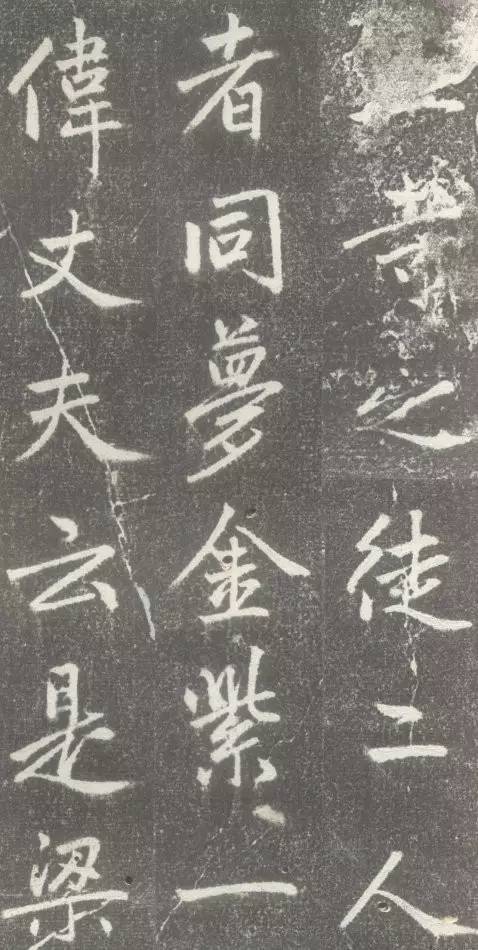 之徒二人
者同夢金紫一
偉丈夫云是梁